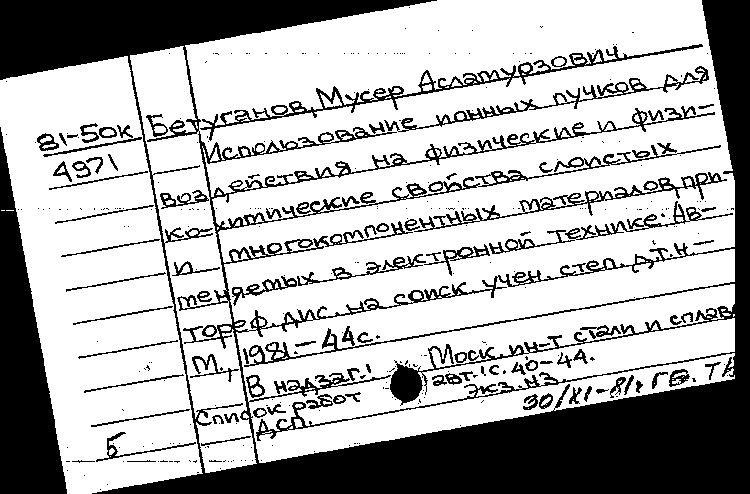 81-50к Бетуганов, Мусер Аслатурзович.
4971 Использование ионных пучков для
воздействия на физические и физи-
ко-химические свойства слоистых
и многокомпонентных материалов, при-
меняемых в электронной технике: Ав-
тореф. дис. на соиск. учен. степ. д.т.н.-
М., 1981.-44с.
В надзаг.: Моск. ин-т стали и сплаво
Список работ авт.: с. 40-44.
Дсп. экз. №3.
5 30/XI-81г